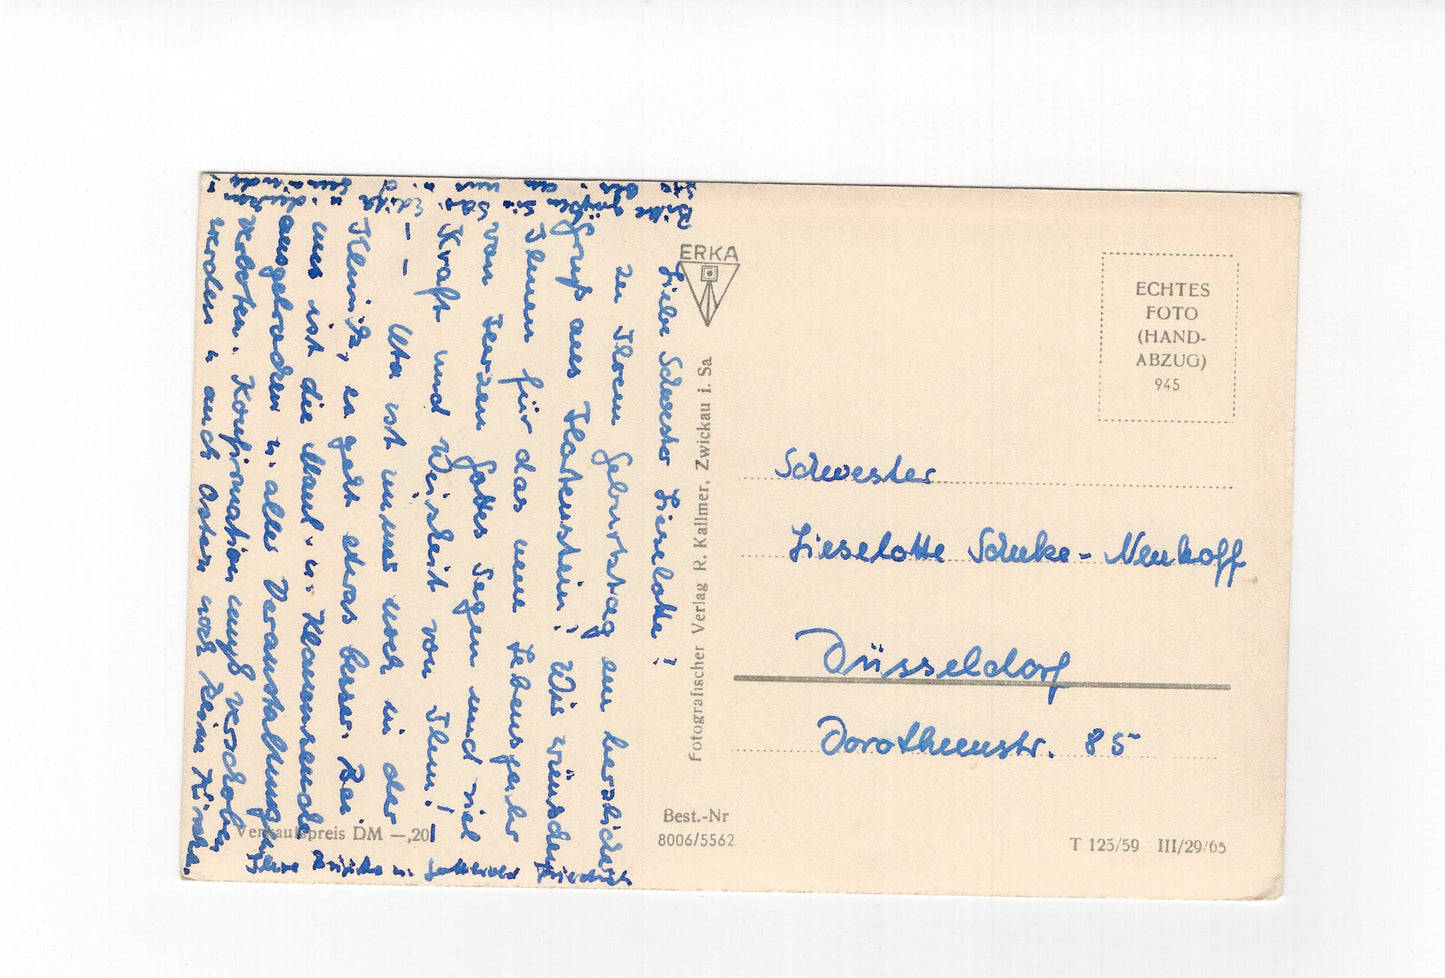 Liebe Schwester Lieselotte!
Zu Ihrem Geburtstag ein herzlicher
Gruß aus Hartenstein! Wir wünschen
Ihnen für das neue Lebensjahr
von Herzen Gottes Segen und viel
Kraft und Weisheit von Ihm! –
– – Uta ist immer noch in der
Klinik, es geht etwas besser. Bei
uns ist die Maul- u. Klauenseuche
ausgebrochen u. alle Veranstaltungen
verboten. Konfirmation muß verschoben
werden u. auch Ostern noch keine Kirche.
Ihre u. Gottwerder
Bitte grüßen Sie
ERKA
Fotografischer Verlag R. Kallmer, Zwickau i. Sa.
ECHTES
FOTO
(HAND-
ABZUG)
945
Schwester
Lieselotte Schuke-Neuhoff
Düsseldorf
Dorotheenstr. 85
Verkaufspreis DM —,20
Best.-Nr
8006/5562
T 123/59 III/29/63